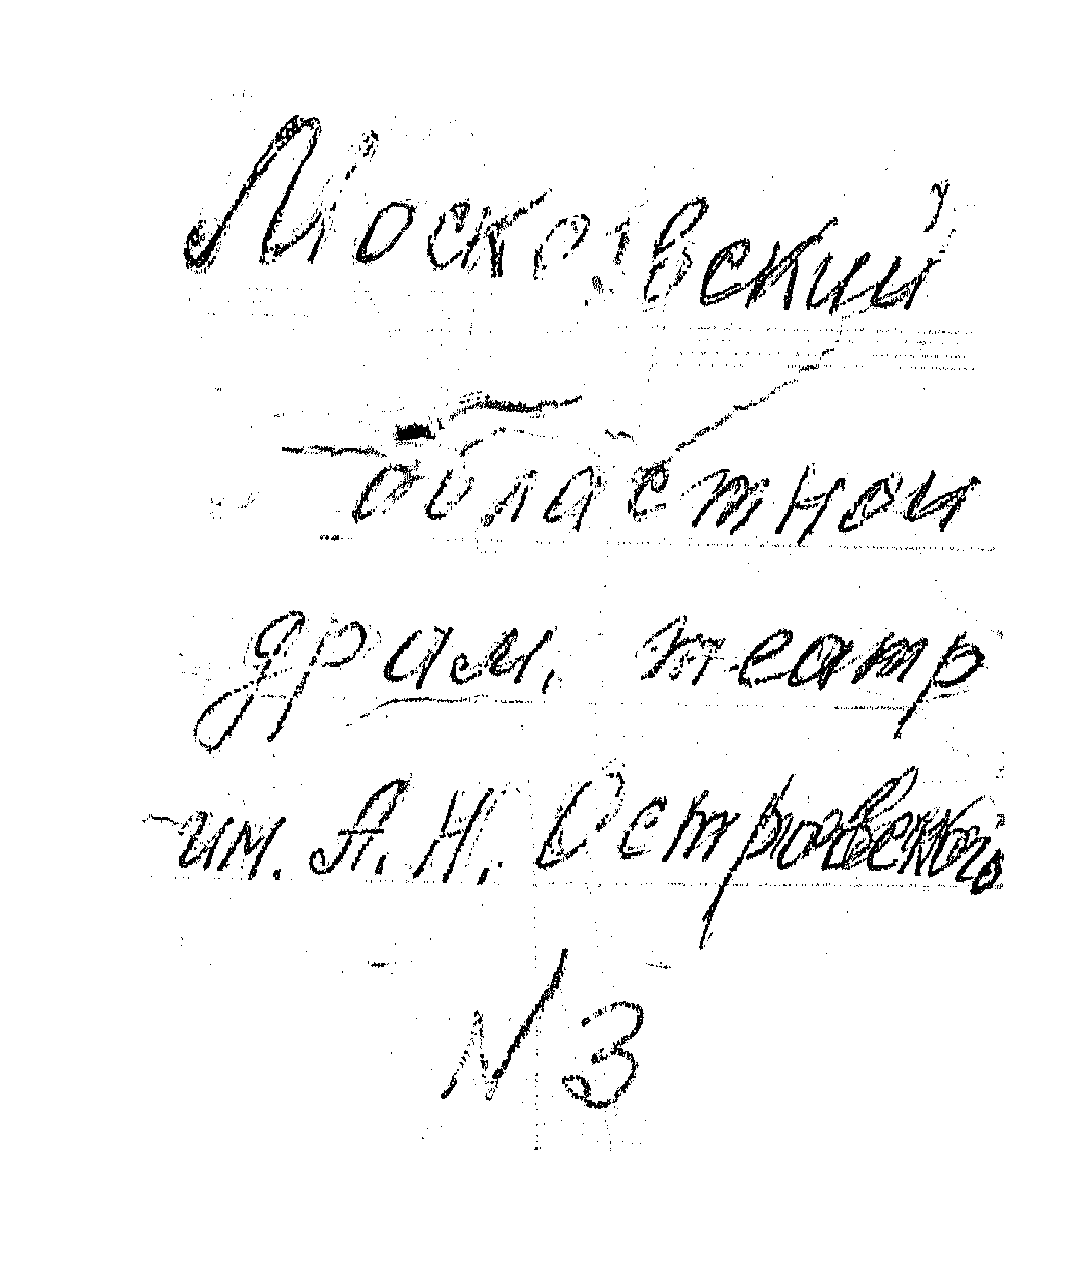 Московский
областной
драм. театр
им. А. Н. Островского
N 3